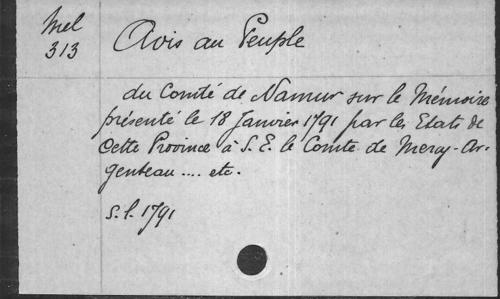 Mel
313
Avis au Peuple
du Comté de Namur sur le Mémoire
présenté le 18 Janvier 1791 par les Etats de
cette Province à S. E. le Comte de Mercy-Ar-
genteau .... etc.
s. l. 1791